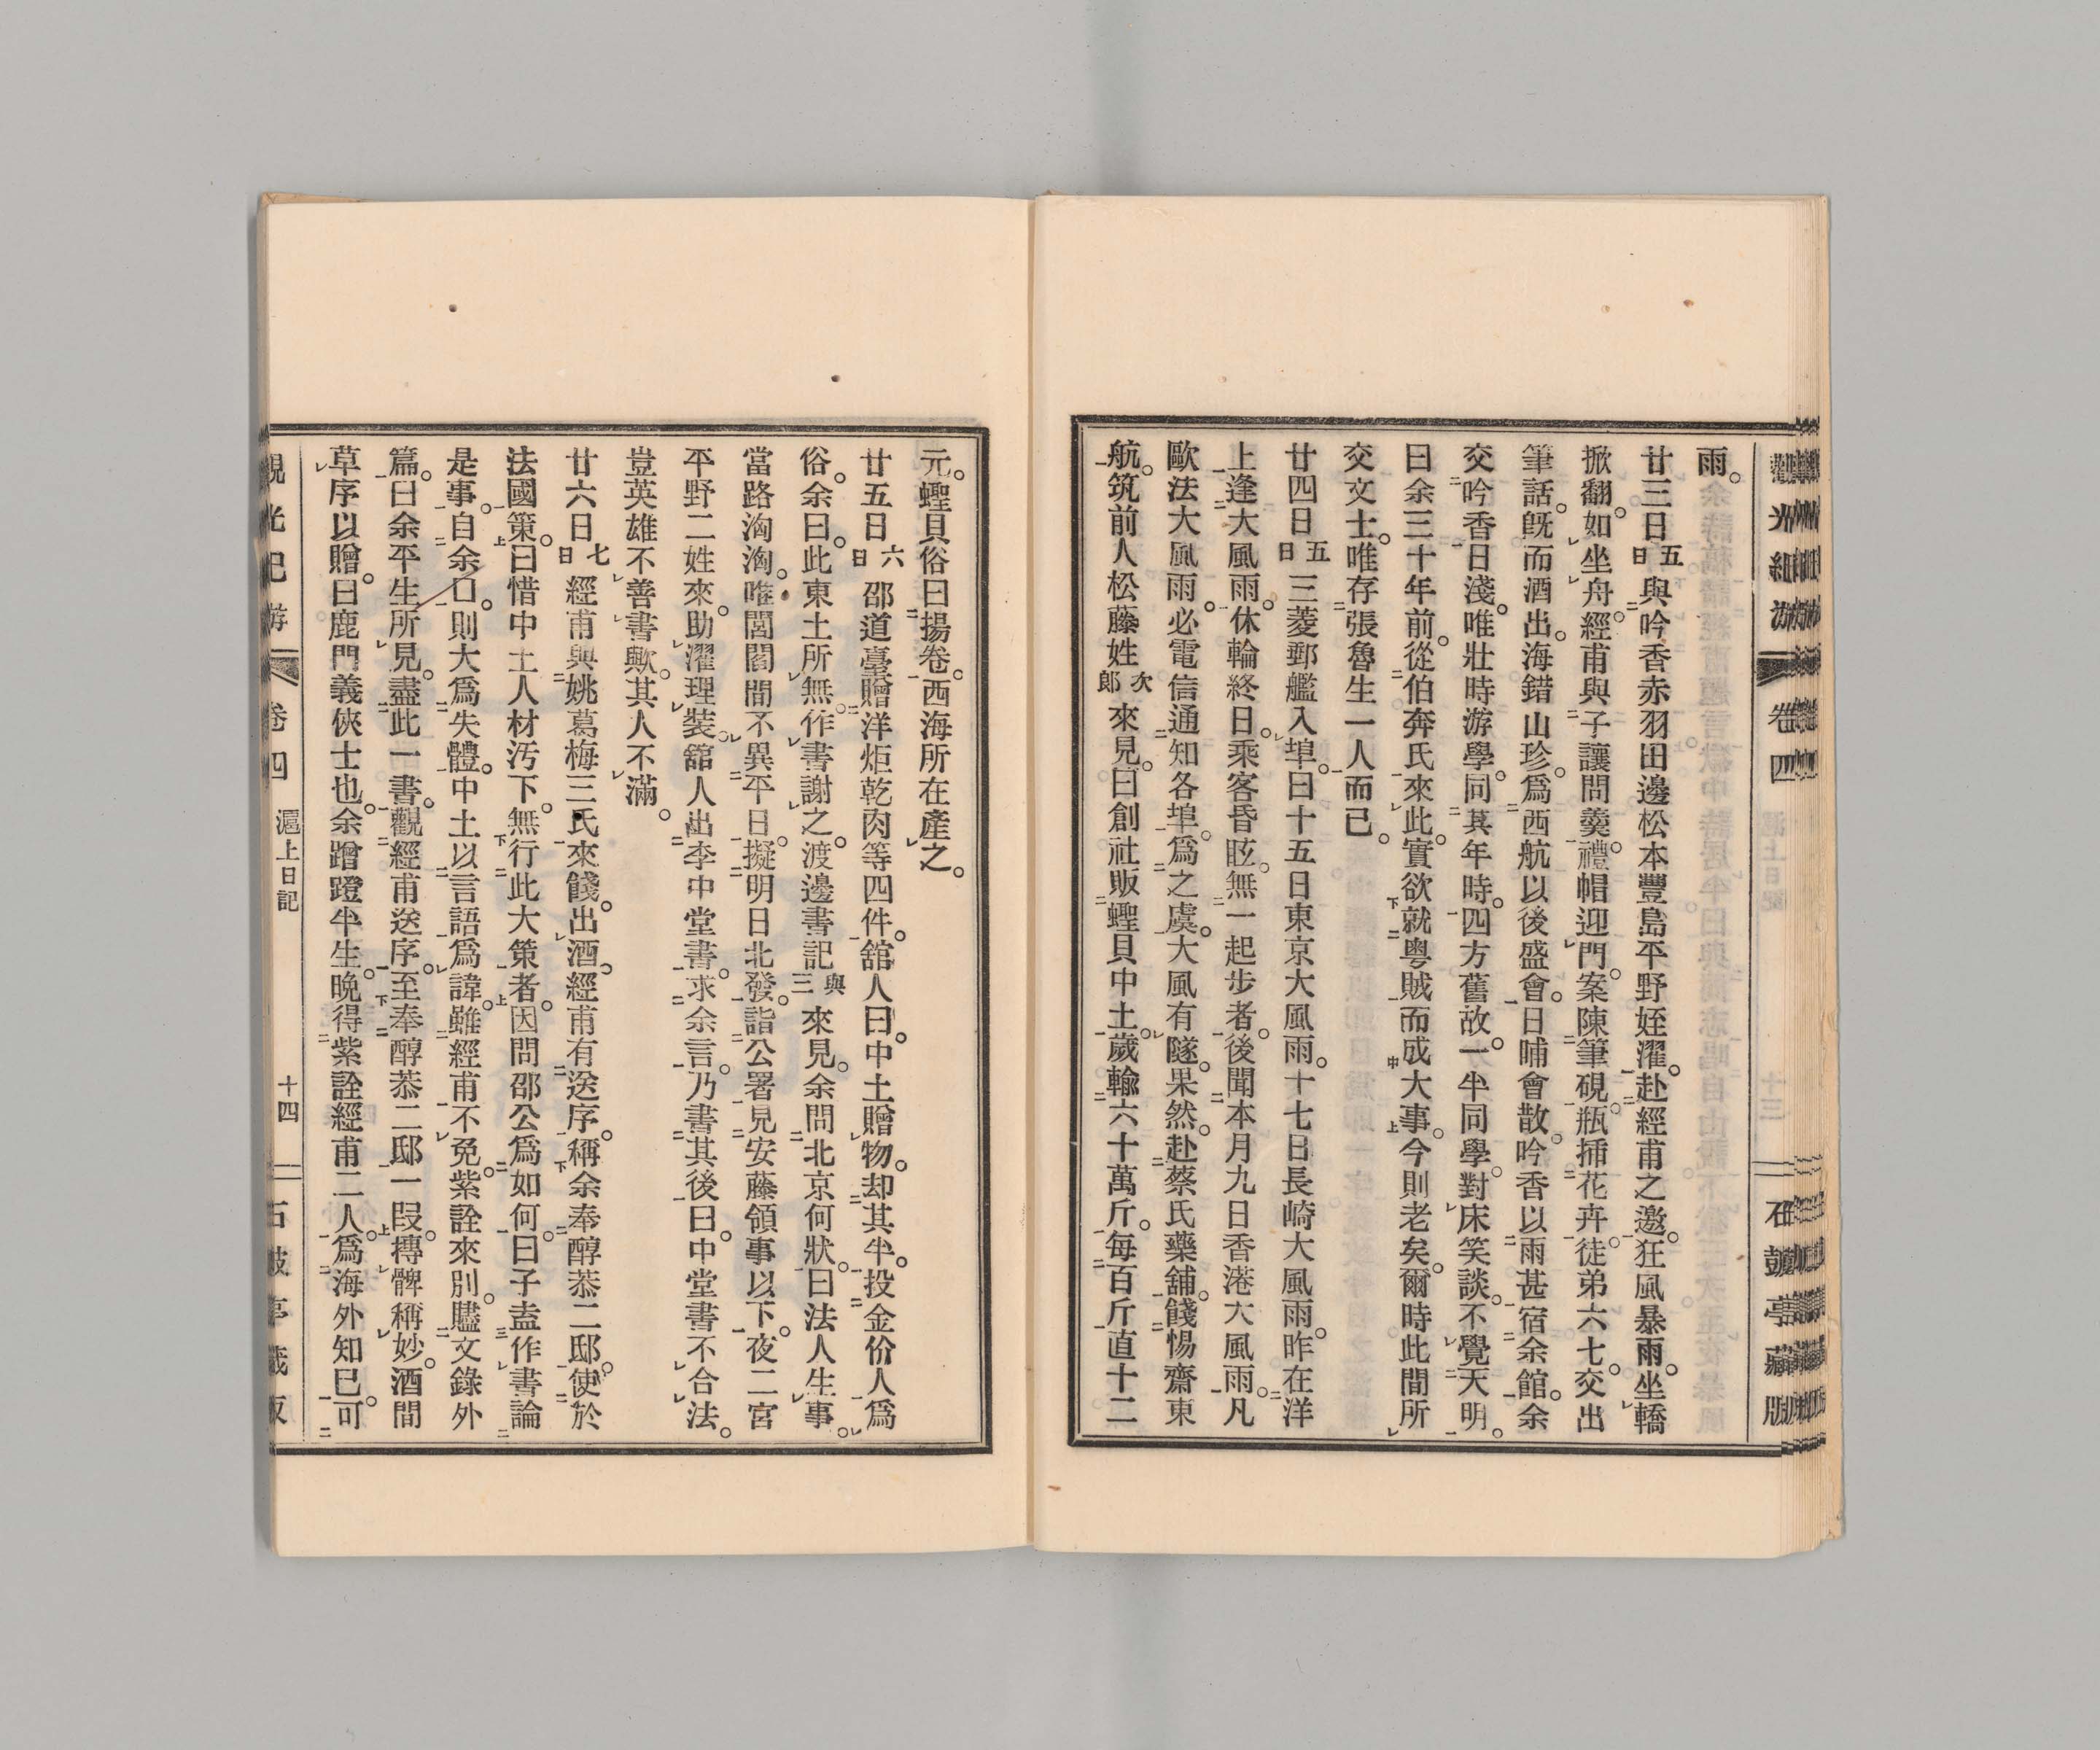 雨。
廿三日五日與吟香赤羽田邊松本豐島平野姪濯。赴經甫之邀。狂風暴雨。坐轎
掀翻。如坐舟。經甫與子讓問羹。禮帽迎門。案陳筆硯。瓶揷花卉。徒弟六七。交出
筆話。旣而酒出。海錯山珍。爲西航以後盛會。日晡會散。吟香以雨甚宿余館。余
交吟香日淺。唯壯時游學。同其年時。四方舊故。一半同學。對床笑談。不覺天明。
曰余三十年前。從伯奔氏來此。實欲就粵賊而成大事。今則老矣。爾時此間所
交文士。唯存張魯生一人而已。
廿四日五日三菱郵艦入埠。曰十五日東京大風雨。十七日長崎大風雨。昨在洋
上逢大風雨。休輪終日。乘客昏眩。無一起步者。後聞本月九日香港大風雨。凡
歐法大風雨。必電信通知各埠。爲之虞。大風有隧。果然。赴蔡氏藥舖。餞惕齋東
航。筑前人松藤姓次郎來見。曰創社販蟶貝中土。歲輸六十萬斤。每百斤直十二
元。蟶貝俗曰揚卷。西海所在產之。
廿五日六日邵道臺贈洋炬乾肉等四件。舘人曰。中土贈物。却其半。投金价人爲
俗。余曰。此東土所無。作書謝之。渡邊書記與三來見。余問北京何狀。曰法人生事。
當路洶洶。唯閭閻間不異平日。擬明日北發。詣公署見安藤領事以下。夜二宮
平野二姓來。助濯理裝。舘人出李中堂書。求余言。乃書其後曰。中堂書不合法。
豈英雄不善書歟。其人不滿。
廿六日七日經甫與姚葛梅三氏來餞。出酒。經甫有送序。稱余奉醇恭二邸。使於
法國策。曰惜中土人材汚下。無行此大策者。因問邵公爲如何。曰子盍作書論
是事。自余口。則大爲失體。中土以言語爲諱。雖經甫不免。紫詮來別。贐文錄外
篇。曰余平生所見。盡此一書。觀經甫送序。至奉醇恭二邸一段。摶髀稱妙。酒間
草序以贈。曰鹿門義俠士也。余蹭蹬半生。晩得紫詮經甫二人。爲海外知己。可
卷四
滬上日記
十四
卷四